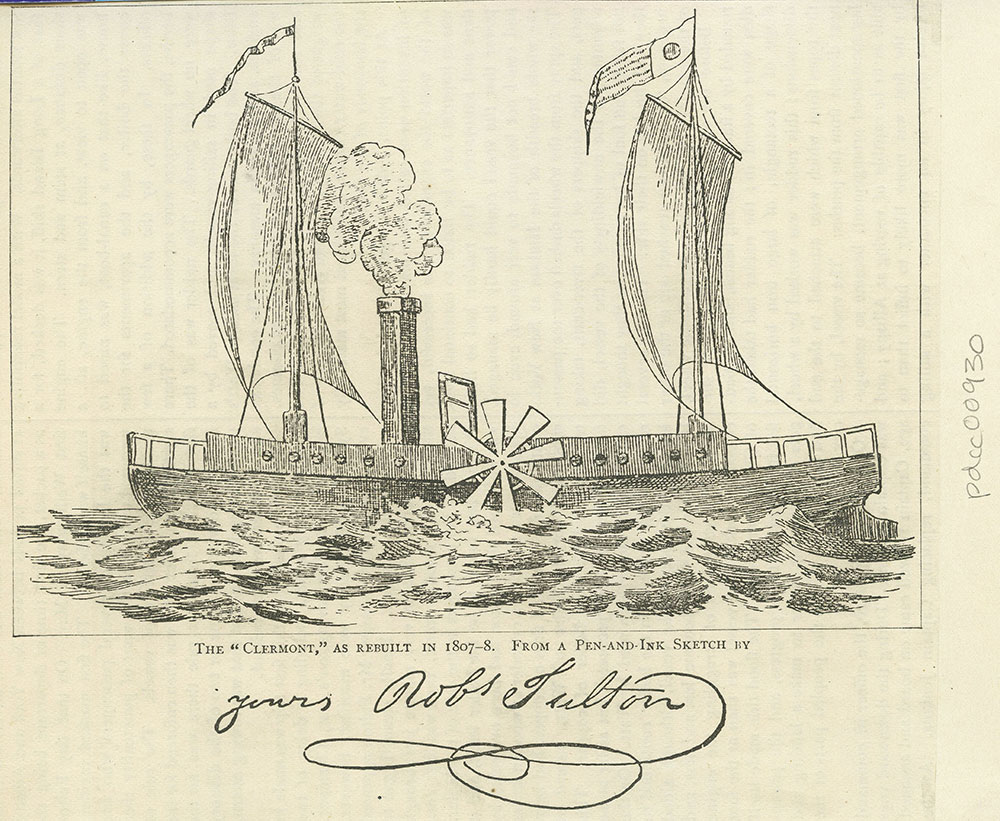 THE "CLERMONT," AS REBUILT IN 1807–8. FROM A PEN-AND-INK SKETCH BY
yours Robt Fulton
pdcc00930